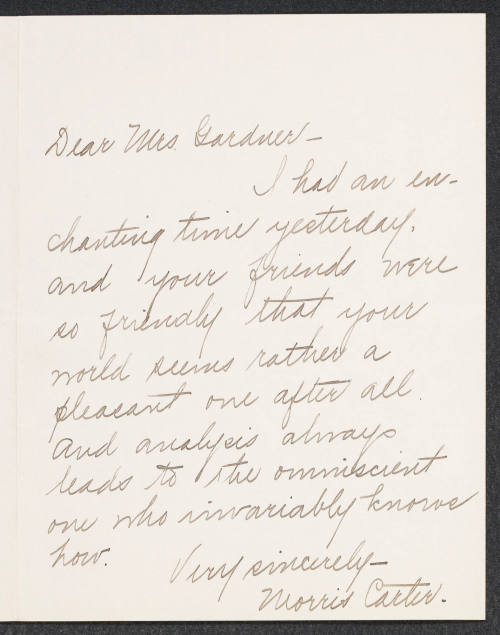 Dear Mrs. Gardner—
I had an en-
chanting time yesterday,
and your friends were
so friendly that your
world seems rather a
pleasant one after all.
And analysis always
leads to the omniscient
one who invariably knows
how.
Very sincerely—
Morris Carter.